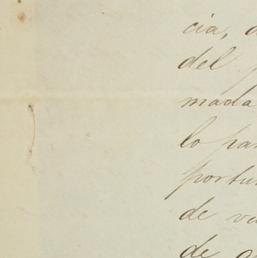 cia,
del
mada
lo par
portu
de
de